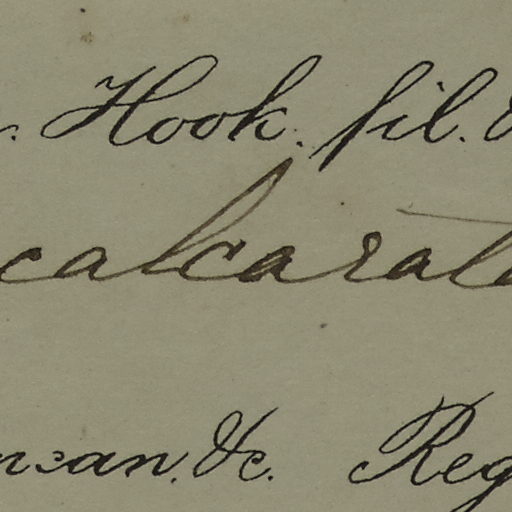 Hook. fil. &
calcarata
&c. Reg